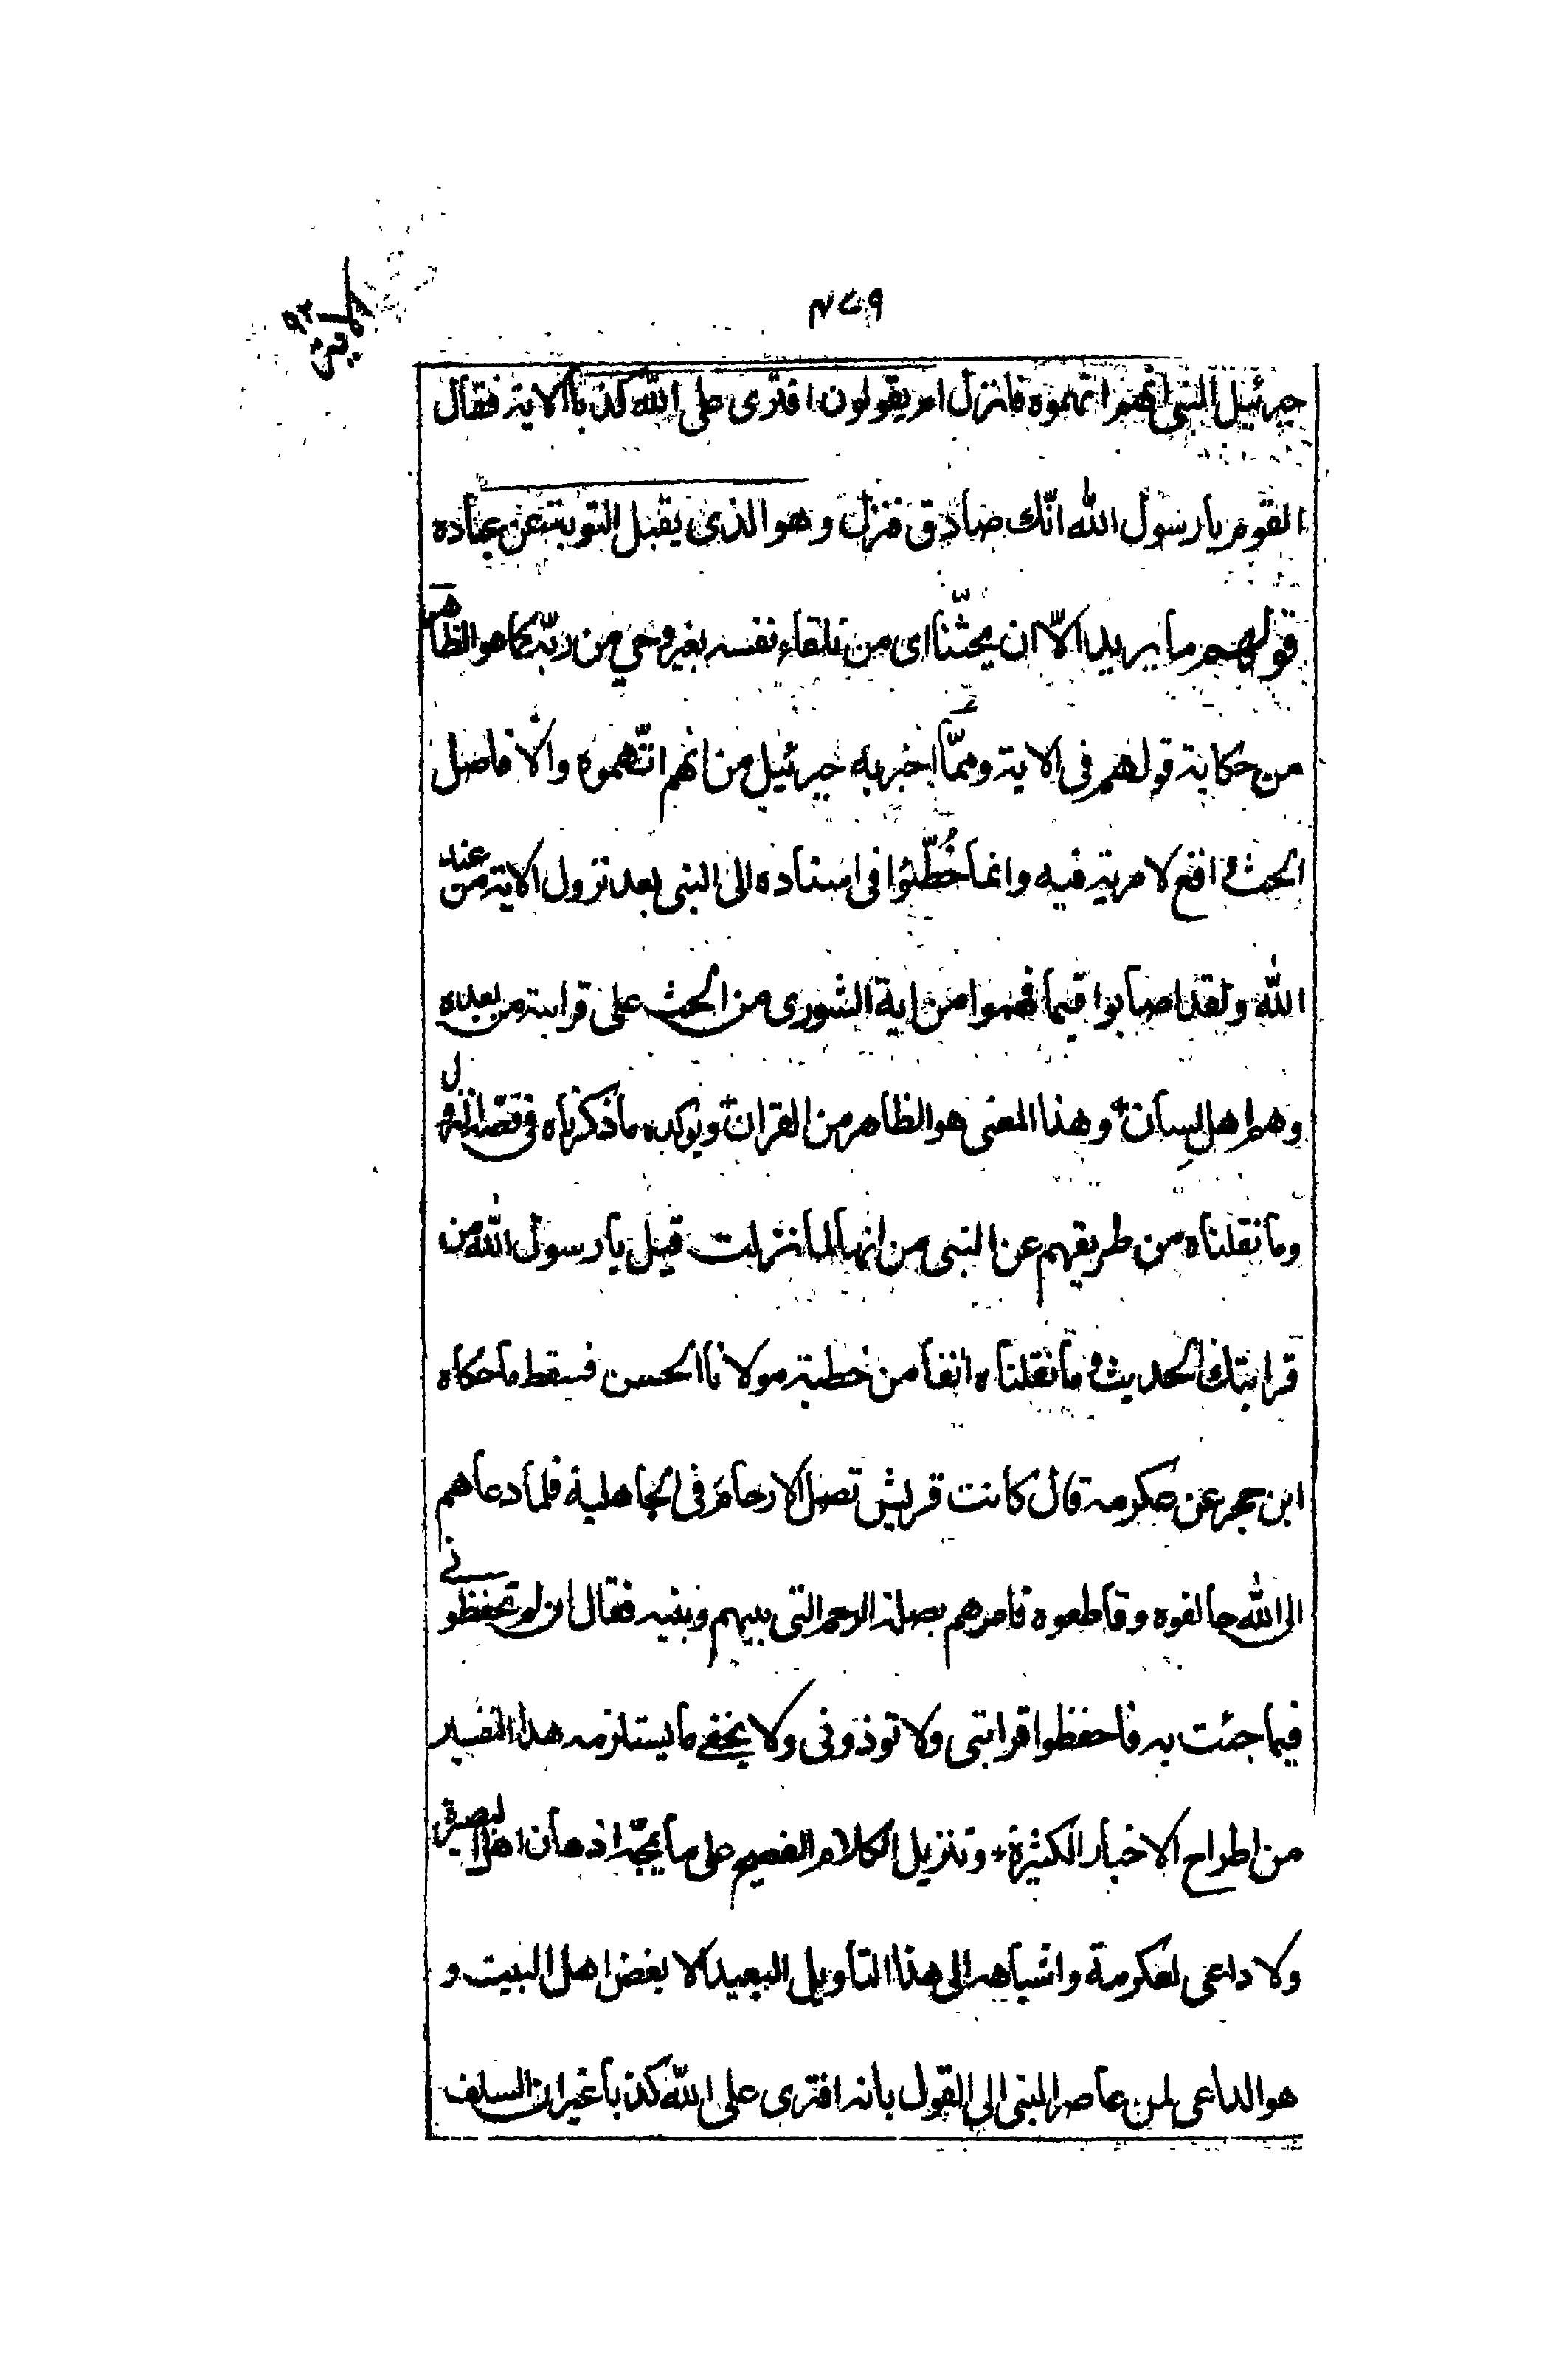 ٤٧٩
جبرئيل النبي انهم اتهموه فانزل ام يقولون افترى على الله كذبا الاية فقال
القوم يا رسول الله انّك صادق فنزل وهو الذى يقبل التوبة عن عباده
قولهم ما يريد الاّ ان يحثّنا اى من تلقاء نفسه بغير وحي من ربّه كما هو الظاهر
من حكاية قولهم فى الاية وممّا اخبر به جبرئيل من انهم اتّهموه والا فاصل
الحث واقع لا مرية فيه وانما خُطّئوا فى اسناده الى النبى بعد نزول الاية من عند
الله ولقد اصابوا فيما فهموا من اية الشورى من الحث على قرابته من بعده
وهم اهل لسان وهذا المعنى هو الظاهر من القران ويوكده ما ذكرناه فى قصة النزول
وما نقلناه من طريقهم عن النبى من انها لما نزلت قيل يا رسول الله من
قرابتك الحديث وما نقلناه انفا من خطبة مولانا الحسن فسقط ما حكاه
ابن حجر عن عكرمة قال كانت قريش تصل الارحام فى الجاهلية فلما دعاهم
الى الله خالفوه وقاطعوه فامرهم بصلة الرحم التى بينهم وبينه فقال ان لم تحفظونے
فيما جئت به فاحفظوا قرابتى ولا توذونى ولا يخفے ما يستلزمه هذا التفسير
من اطراح الاخبار الكثيرة وتنزيل الكلام الفصيح على ما يمجّه اذهان اهل البصيرة
ولا داعى لعكرمة واشباهه الى هذا التاويل البعيد الا بغض اهل البيت و
هو الداعى لمن عاصر النبى الى القول بانه افترى على الله كذبا غير ان السلف